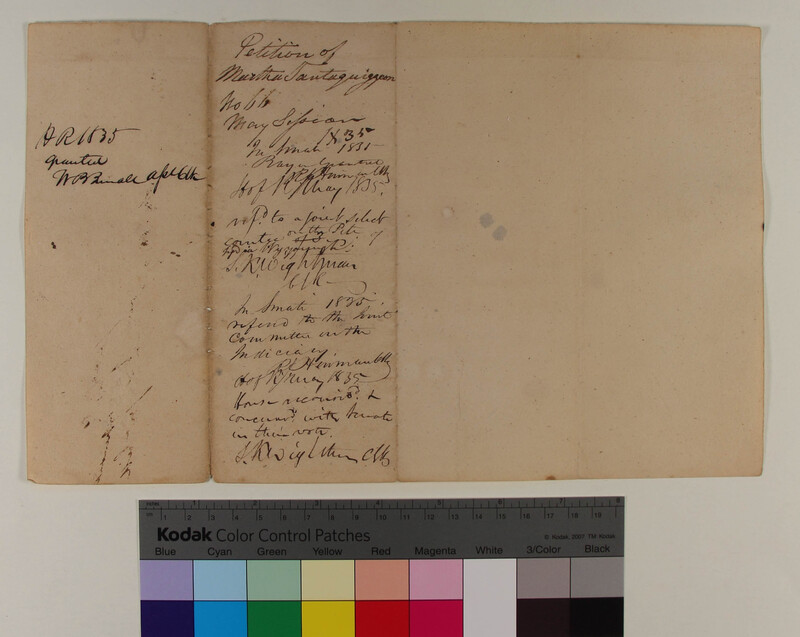 H R 1835
granted
Petition of
Martha Tantaquiggeon
No 66
May Session
1835
In Senate 1835
Prayer Granted
H of R May 1835.
ref.d to a joint select
comtee on the Petn of
S. K. Wightman
Clk
In Senate 1835.
referred to the Joint
Committee on the
Judiciary
H of R May 1835
House reconsid.d &
concurrd. with Senate
in their vote.
S. K. Wightman Clk
mm
in
1 2 3 4 5 6 7 8
1 2 3 4 5 6 7 8 9 10 11 12 13 14 15 16 17 18 19
Kodak Color Control Patches
© Kodak, 2007 TM: Kodak
Blue Cyan Green Yellow Red Magenta White 3/Color Black